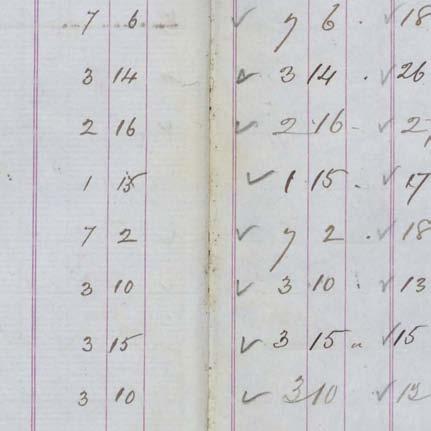 7 6 ✓ 7 6 . ✓ 18
3 14 ✓ 3 14 . ✓ 26
2 16 ✓ 2 16 - ✓ 2
1 15 ✓ 1 15 . ✓ 17
7 2 ✓ 7 2 . ✓ 18
3 10 ✓ 3 10 . ✓ 13
3 15 ✓ 3 15 " ✓ 15
3 10 ✓ 3 10 ✓ 13